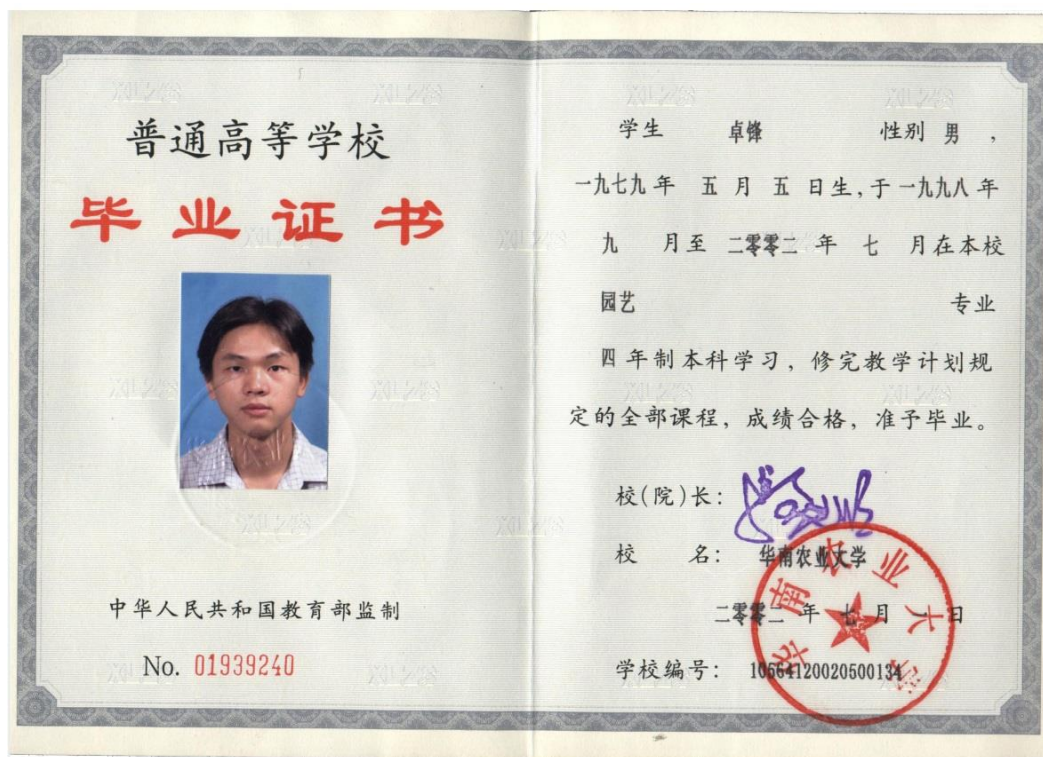 普通高等学校
毕业证书
中华人民共和国教育部监制
No. 01939240
学生 卓锋 性别 男 ,
一九七九 年 五 月 五 日生,于 一九九八 年
九 月至 二零零二 年 七 月在本校
园艺 专业
四 年制本科学习，修完教学计划规
定的全部课程，成绩合格，准予毕业。
校(院)长：
校 名： 华南农业大学
二零零二 年 七 月 一 日
学校编号： 10564120020500134
华南农业大学